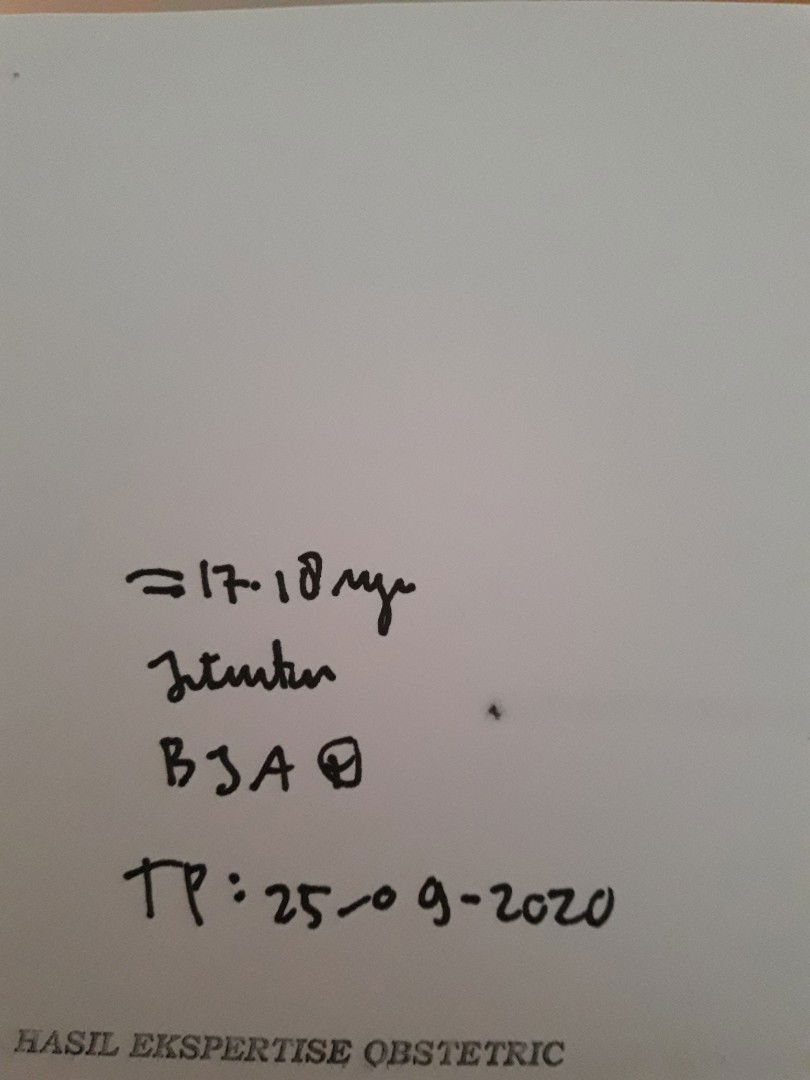 = 17-18 mgu
BJA ⊕
TP: 25-09-2020
HASIL EKSPERTISE OBSTETRIC